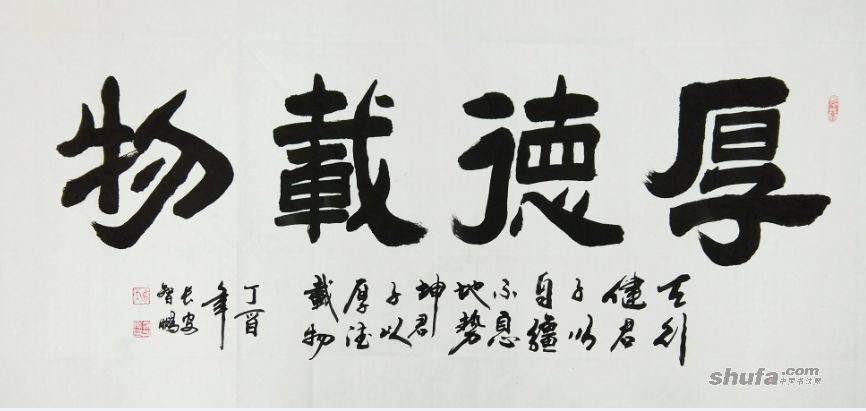 厚德載物
天行
健君
子以
自彊
不息
地勢
坤君
子以
厚德
載物
丁酉
年
長安
智鵬
shufa.com
中国书法网